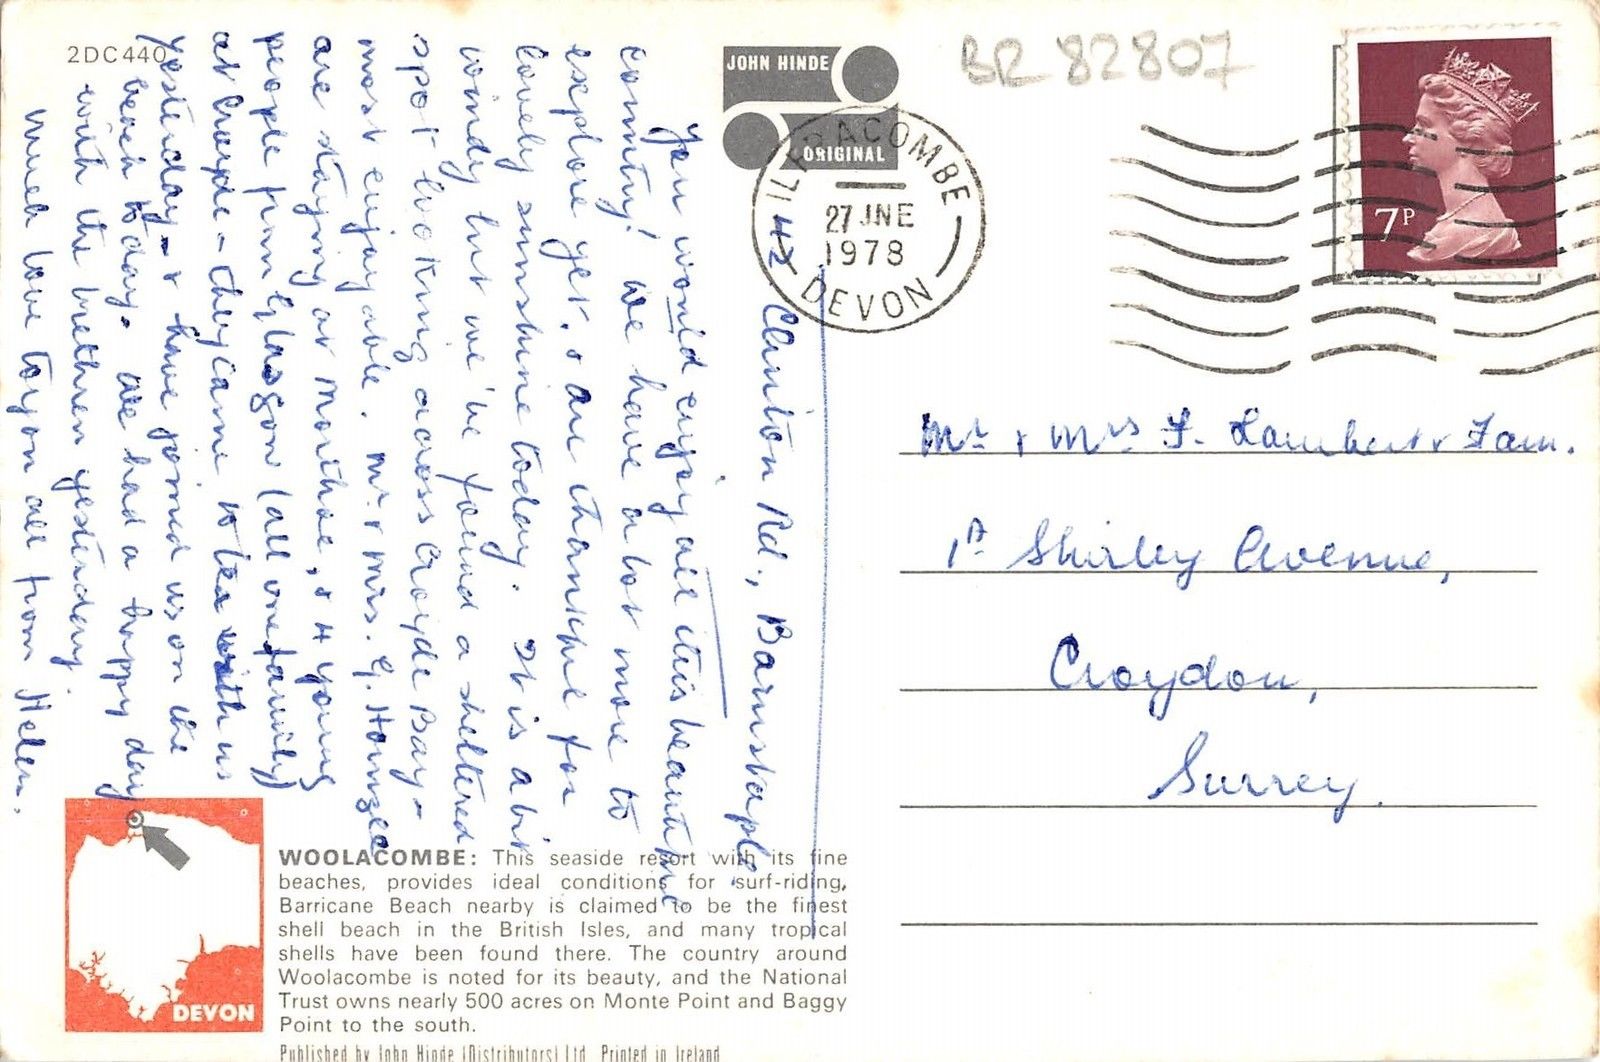 2DC440
JOHN HINDE
ORIGINAL
BR 82807
ILFRACOMBE
27 JNE
1978
DEVON
7P
42 Clinton Rd., Barnstaple.
You would enjoy all this beautiful
country! We have a lot more to
explore yet, & are thankful for
lovely sunshine today. It is a bit
windy but we've found a sheltered
spot looking across Croyde Bay -
most enjoyable. Mr. & Mrs. G.
are staying at Morthoe, & 4 young
people from Glasgow (all one family)
at Croyde - they came to tea with us
yesterday - & have joined us on the
beach today. We had a happy day
with the brethren yesterday.
Much love to you all from Helen.
Mr & Mrs F. Lambert & Fam.
1A Shirley Avenue,
Croydon,
Surrey.
WOOLACOMBE: This seaside resort with its fine
beaches, provides ideal conditions for surf-riding,
Barricane Beach nearby is claimed to be the finest
shell beach in the British Isles, and many tropical
shells have been found there. The country around
Woolacombe is noted for its beauty, and the National
Trust owns nearly 500 acres on Monte Point and Baggy
Point to the south.
Published by John Hinde (Distributors) Ltd. Printed in Ireland
DEVON